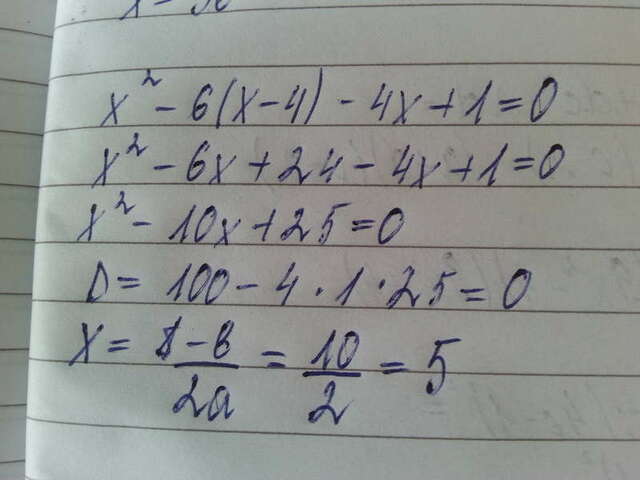 x² - 6(x-4) - 4x + 1 = 0
x² - 6x + 24 - 4x + 1 = 0
x² - 10x + 25 = 0
D = 100 - 4 · 1 · 25 = 0
x = -в/2a = 10/2 = 5